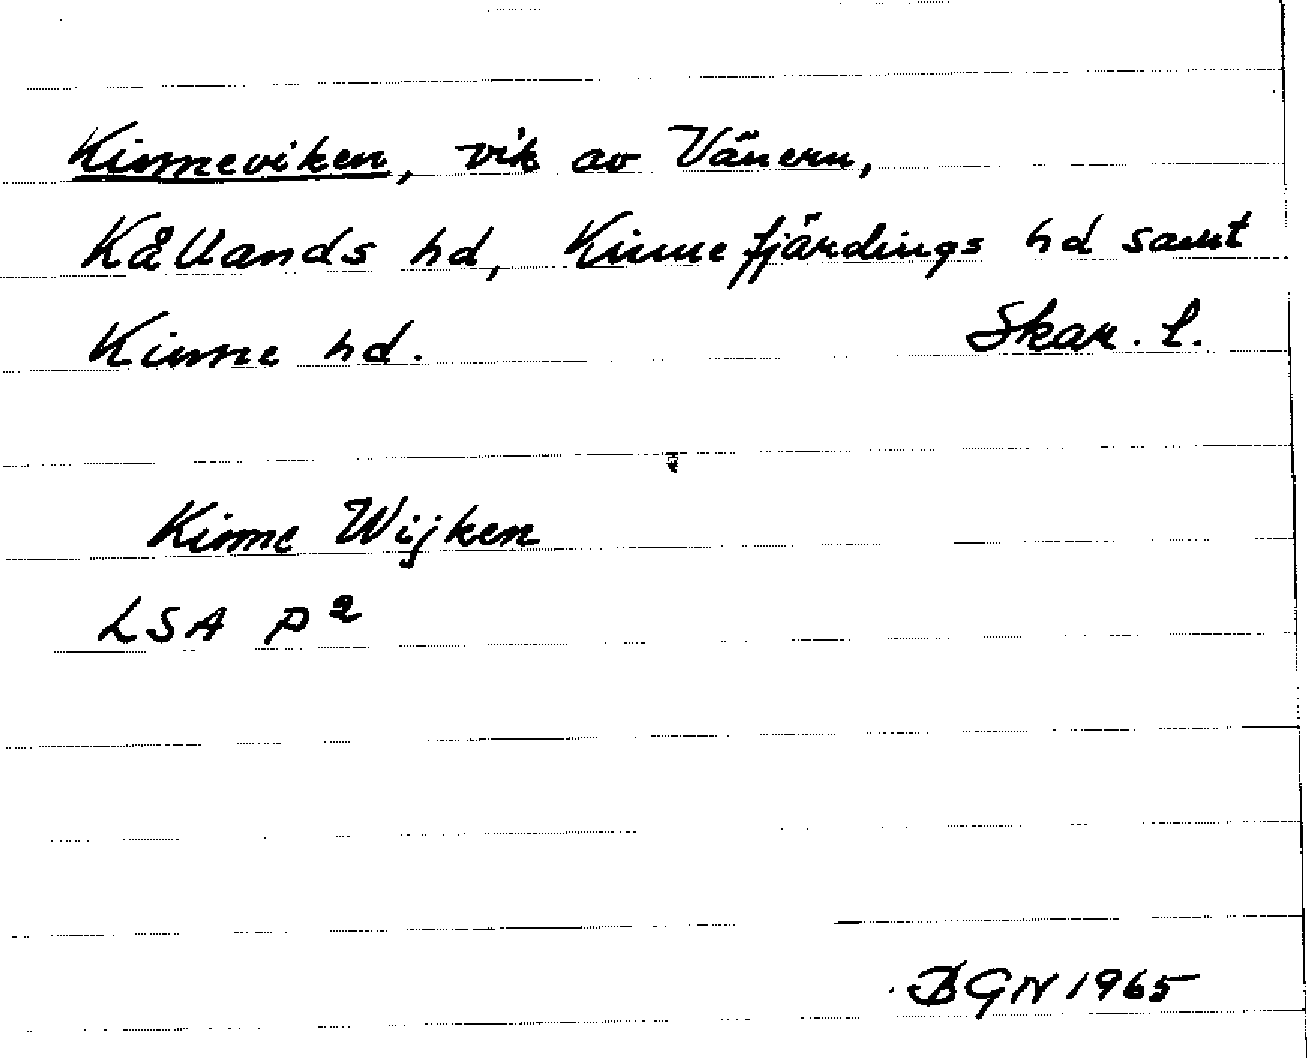 Kinneviken, vik av Vänern,
Kållands hd, Kinnefjärdings hd samt
Kinne hd. Skar. l.
Kinne Wijken
LSA P 2
BGN 1965